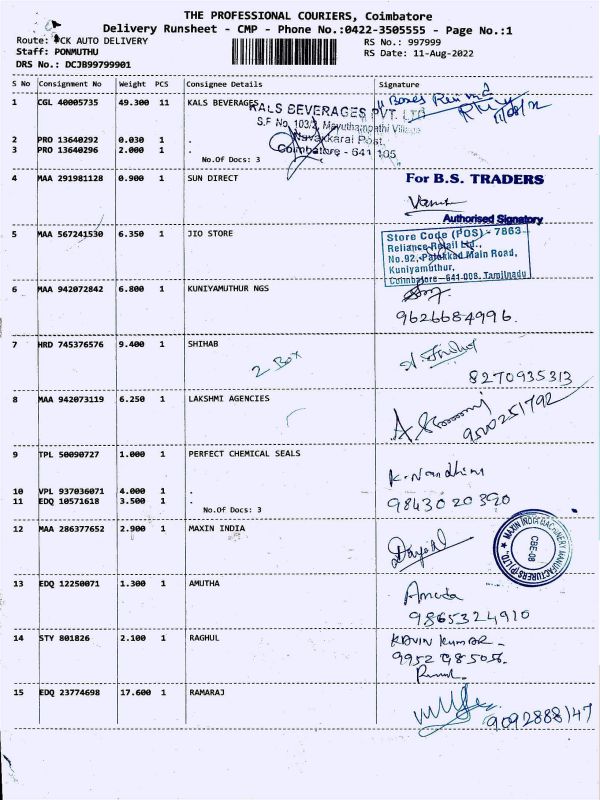 THE PROFESSIONAL COURIERS, Coimbatore
Delivery Runsheet - CMP - Phone No.:0422-3505555 - Page No.:1
Route: CK AUTO DELIVERY
RS No.: 997999
Staff: PONMUTHU
RS Date: 11-Aug-2022
DRS No.: DCJB99799901
S No Consignment No Weight PCS Consignee Details Signature
1 CGL 40005735 49.300 11 KALS BEVERAGES
KALS BEVERAGES PVT. LTD
11 Boxes
11/08/22
S.F No. 103/2, Mavuthampathi Village
Navakkarai Post,
Coimbatore - 641 105
2 PRO 13640292 0.030 1 .
3 PRO 13640296 2.000 1 .
No.Of Docs: 3
4 MAA 291981128 0.900 1 SUN DIRECT
For B.S. TRADERS
Authorised Signatory
5 MAA 567241530 6.350 1 JIO STORE
Store Code (POS) - 7863
Reliance Retail Ltd.,
No.92, Palakkad Main Road,
Kuniyamuthur,
Coimbatore - 641 008. Tamilnadu
6 MAA 942072842 6.800 1 KUNIYAMUTHUR NGS
9626684996.
7 HRD 745376576 9.400 1 SHIHAB
2 Box
8270935313
8 MAA 942073119 6.250 1 LAKSHMI AGENCIES
9500251792
9 TPL 50090727 1.000 1 PERFECT CHEMICAL SEALS
K. Nandhini
10 VPL 937036071 4.000 1 .
11 EDQ 10571618 3.500 1 .
9843020390
No.Of Docs: 3
12 MAA 286377652 2.900 1 MAXIN INDIA
MAXIN INDIA MACHINERY MANUFACTURERS (P) LTD.
CBE-08
13 EDQ 12250071 1.300 1 AMUTHA
Amuda
9865324910
14 STY 801826 2.100 1 RAGHUL
KAVIN KUMAR
9952985056
15 EDQ 23774698 17.600 1 RAMARAJ
9092888147